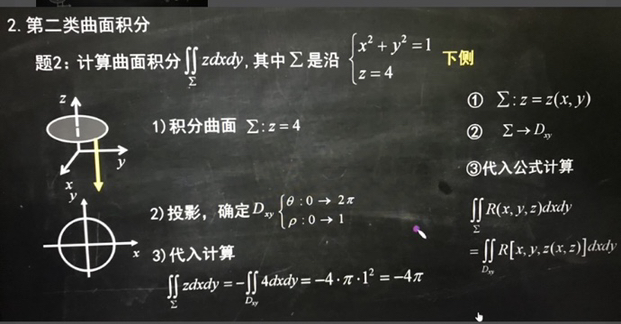 2. 第二类曲面积分
题2: 计算曲面积分∬_Σ zdxdy, 其中Σ是沿 {x² + y² = 1, z = 4 下侧
z
y
x
1) 积分曲面 Σ: z = 4
① Σ: z = z(x, y)
② Σ → D_xy
③代入公式计算
y
x
2) 投影, 确定D_xy {θ : 0 → 2π, ρ : 0 → 1
∬_Σ R(x, y, z)dxdy
= ∬_{D_xy} R[x, y, z(x, z)]dxdy
3) 代入计算
∬_Σ zdxdy = -∬_{D_xy} 4dxdy = -4 · π · 1² = -4π